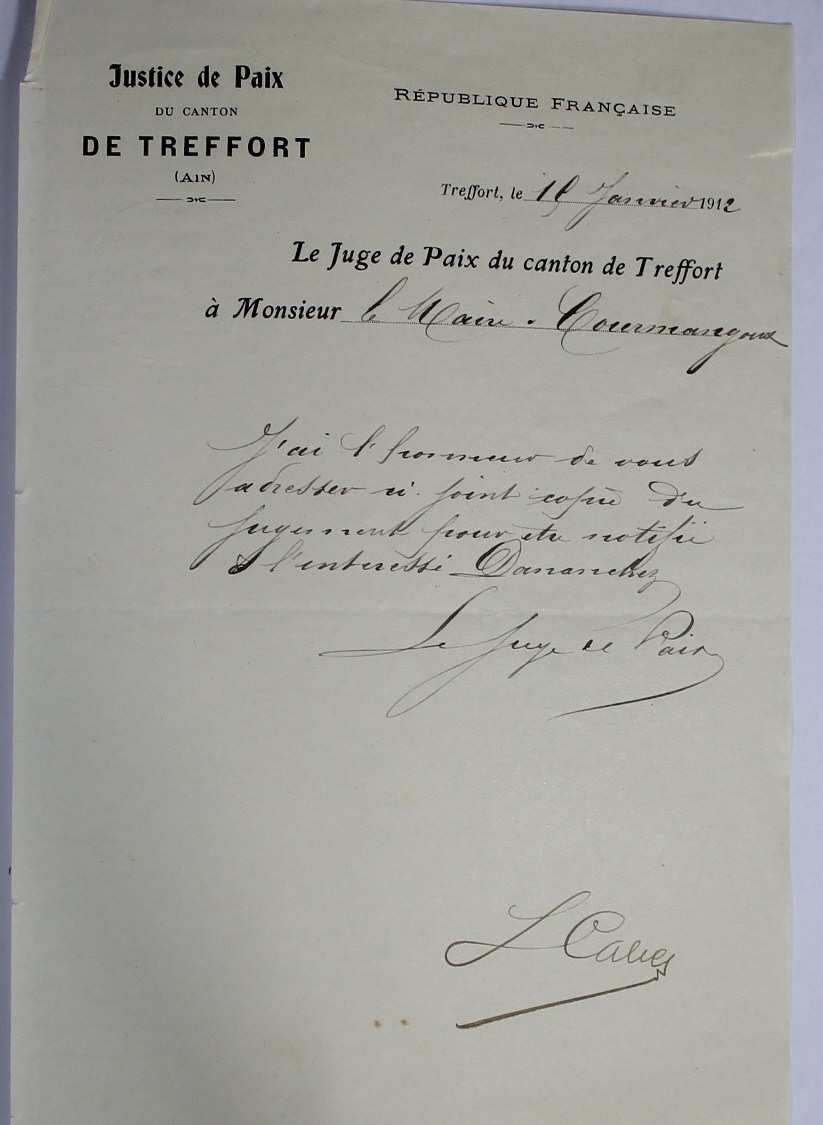 Justice de Paix
DU CANTON
DE TREFFORT
(AIN)
RÉPUBLIQUE FRANÇAISE
Treffort, le 15 Janvier 1912
Le Juge de Paix du canton de Treffort
à Monsieur le Maire. Courmangoux
J'ai l'honneur de vous
adresser ci-joint copie du
jugement pour être notifié
à l'interessé Dananchez
Le Juge de Paix